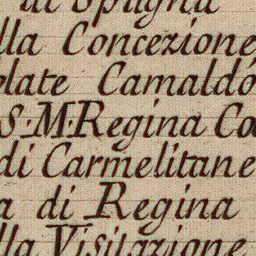 di Spagna
lla Concezione,
olate Camaldo
S. M. Regina Ca
di Carmelitane
a di Regina
lla Visitazione